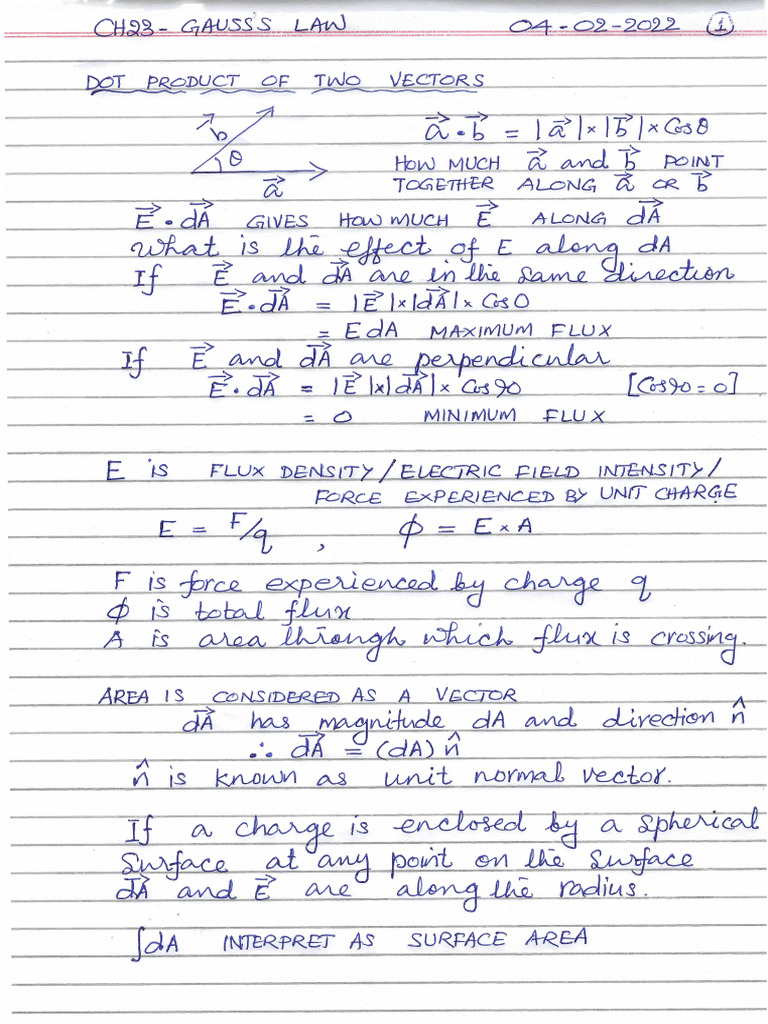 CH23 - GAUSS'S LAW 04-02-2022 ①
DOT PRODUCT OF TWO VECTORS
b⃗ θ a⃗
a⃗ • b⃗ = |a⃗| × |b⃗| × Cosθ
HOW MUCH a⃗ and b⃗ POINT
TOGETHER ALONG a⃗ OR b⃗
E⃗ • dA⃗ GIVES HOW MUCH E⃗ ALONG dA⃗
What is the effect of E along dA
If E⃗ and dA⃗ are in the same direction
E⃗ • dA⃗ = |E⃗| × |dA⃗| × Cos0
= EdA MAXIMUM FLUX
If E⃗ and dA⃗ are perpendicular
E⃗ • dA⃗ = |E⃗| × |dA⃗| × Cos90 [Cos90 = 0]
= 0 MINIMUM FLUX
E IS FLUX DENSITY / ELECTRIC FIELD INTENSITY /
FORCE EXPERIENCED BY UNIT CHARGE
E = F/q , ϕ = E × A
F is force experienced by charge q
ϕ is total flux
A is area through which flux is crossing.
AREA IS CONSIDERED AS A VECTOR
dA⃗ has magnitude dA and direction n̂
∴ dA⃗ = (dA) n̂
n̂ is known as unit normal vector.
If a charge is enclosed by a spherical
surface at any point on the surface
dA⃗ and E⃗ are along the radius.
∫dA INTERPRET AS SURFACE AREA